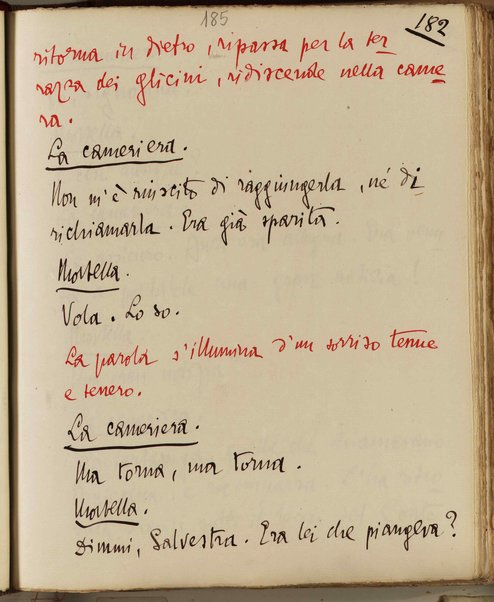 185
182
ritorna in dietro, ripassa per la ter
razza dei glicini, ridiscende nella came
ra.
La cameriera.
Non m'è riuscito di raggiungerla, né di
richiamarla. Era già sparita.
Mortella.
Vola. Lo so.
La parola s'illumina d'un sorriso tenue
e tenero.
La cameriera.
Ma torna, ma torna.
Mortella.
Dimmi, Salvestra. Era lei che piangeva?